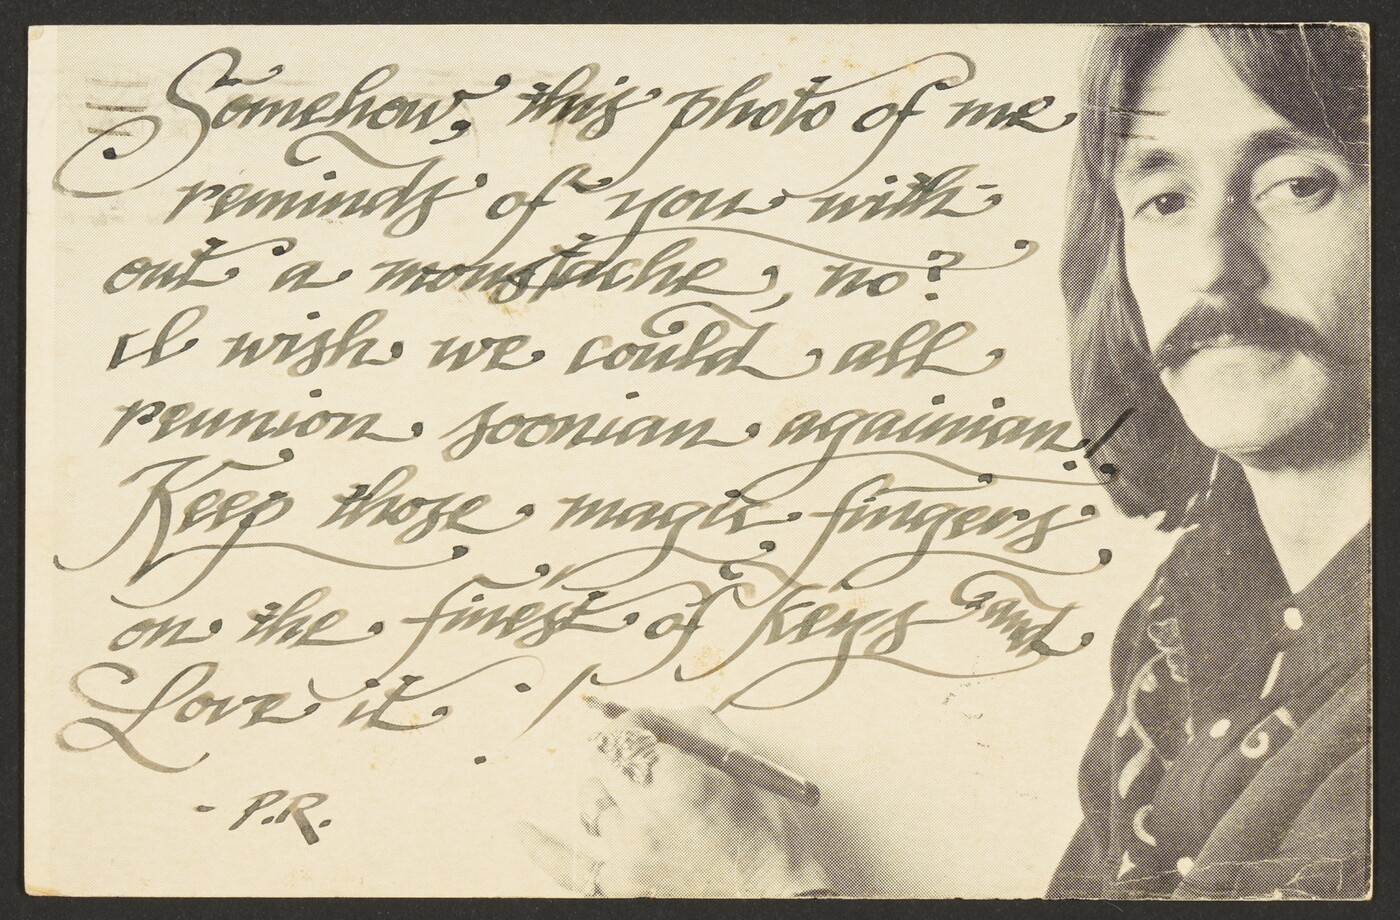 Somehow, this photo of me
reminds of you with-
out a moustache, no?
I wish we could all
reunion soonian againian!
Keep those magic fingers
on the finest of keys and
Love it!
- P.R.